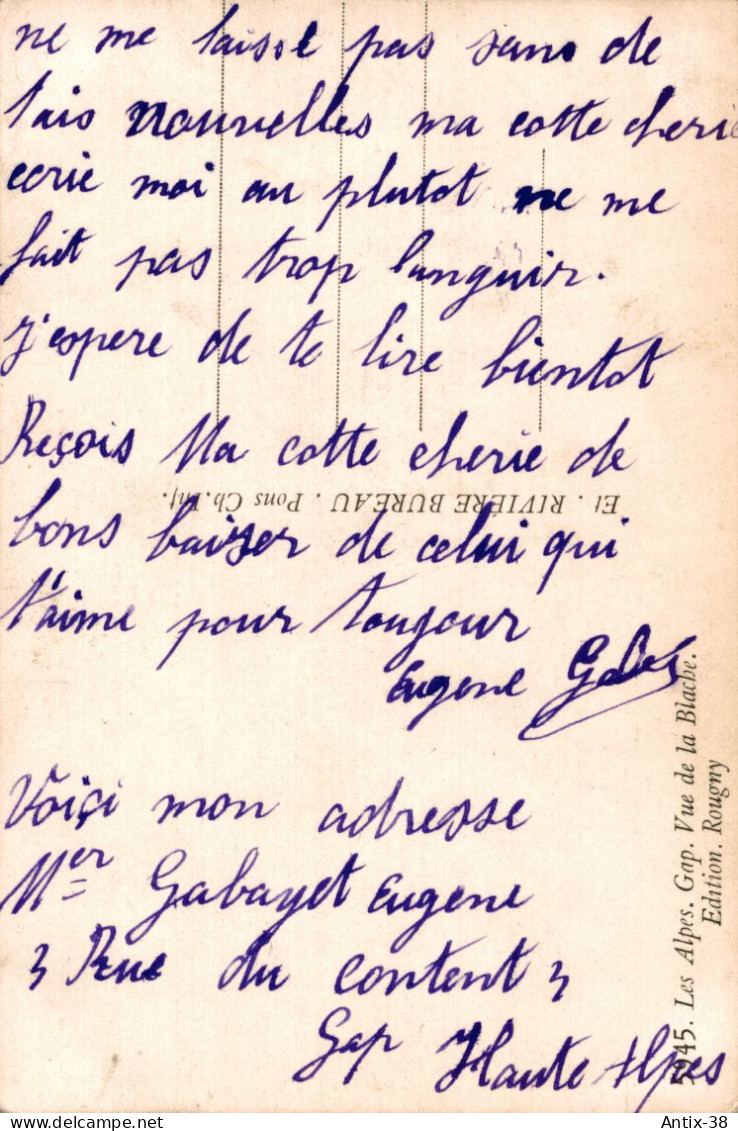 ne me laisse pas sans de
tais nouvelles ma cotte cherie
ecrie moi au plutot ne me
fait pas trop languir.
J'espere de te lire bientot
Reçois Ma cotte cherie de
bons baiser de celui qui
t'aime pour tougour
Eugene
Voiçi mon adresse
Mer Gabayet Eugene
3 Rue du content 3
Gap Haute Alpes
Et. RIVIÈRE BUREAU. Pons Ch. Inf.
5945. Les Alpes. Gap. Vue de la Blache.
Edition. Rougny
Antix-38